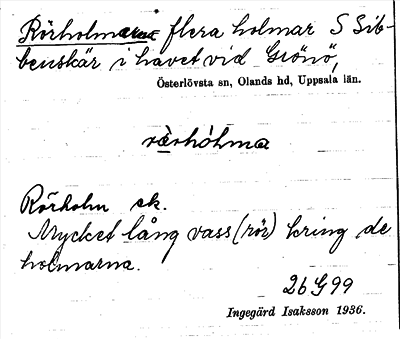 Rörholmarna flera holmar S Sib-
benskär i havet vid Grönö,
Österlövsta sn, Olands hd, Uppsala län.
rø̀rhólma
Rörholm ek.
Mycket lång vass (rör) kring de
holmarna.
26 G 99
Ingegärd Isaksson 1936.